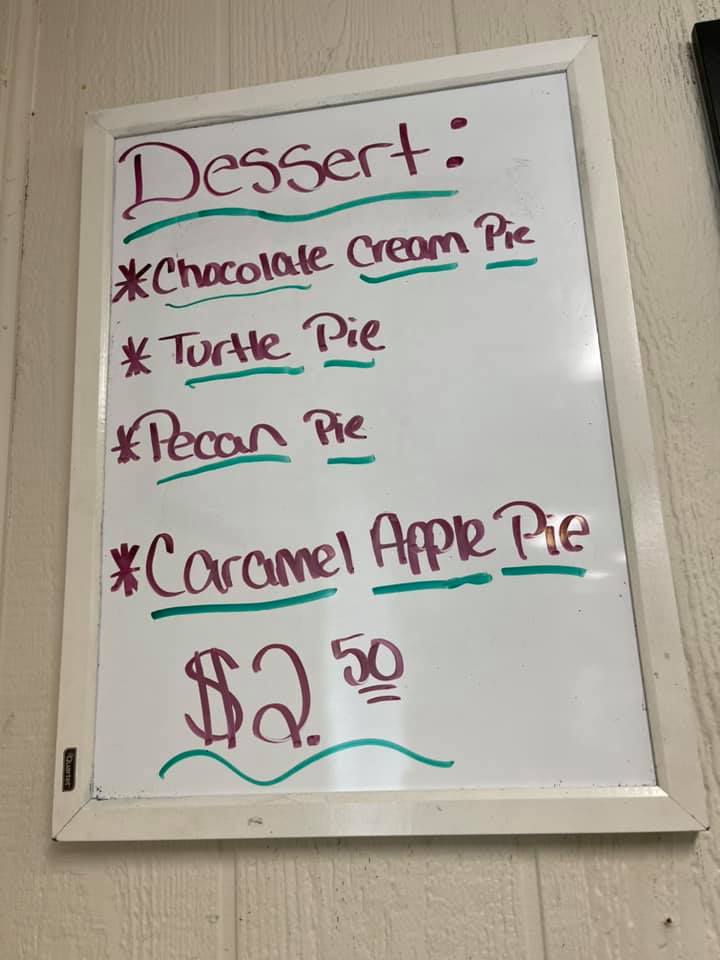 Dessert:
*Chocolate Cream Pie
* Turtle Pie
*Pecan Pie
*Caramel Apple Pie
$2.50
Quartet